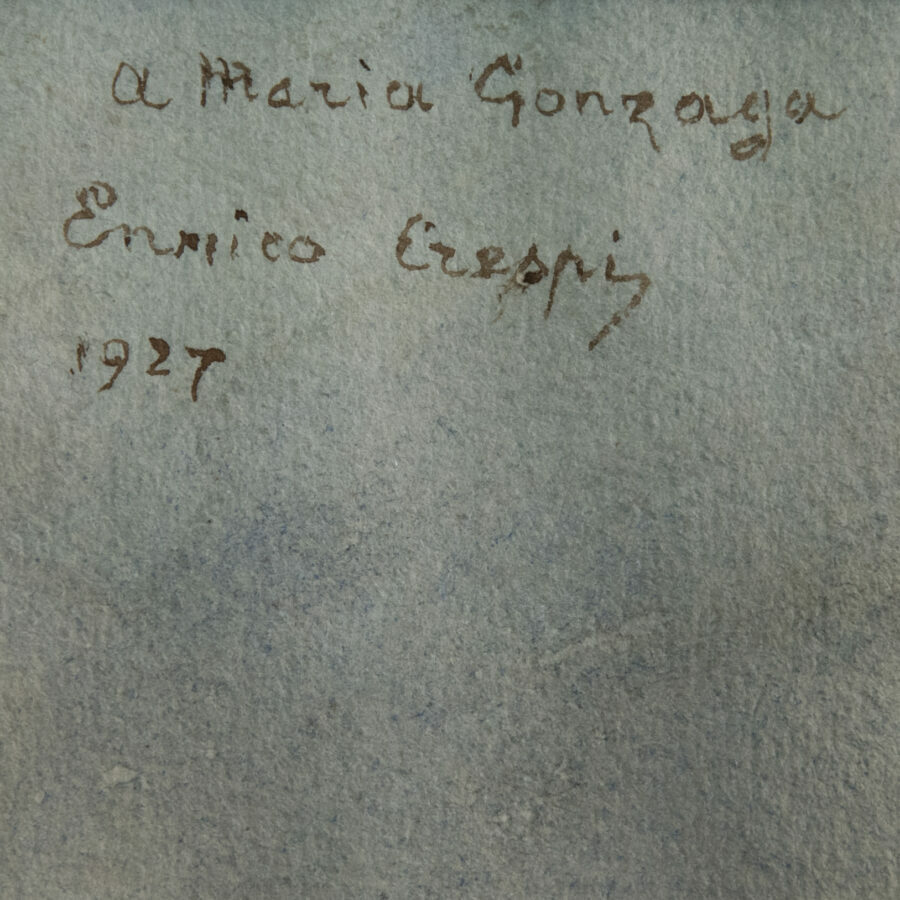 a Maria Gonzaga
Enrico Crespi
1927